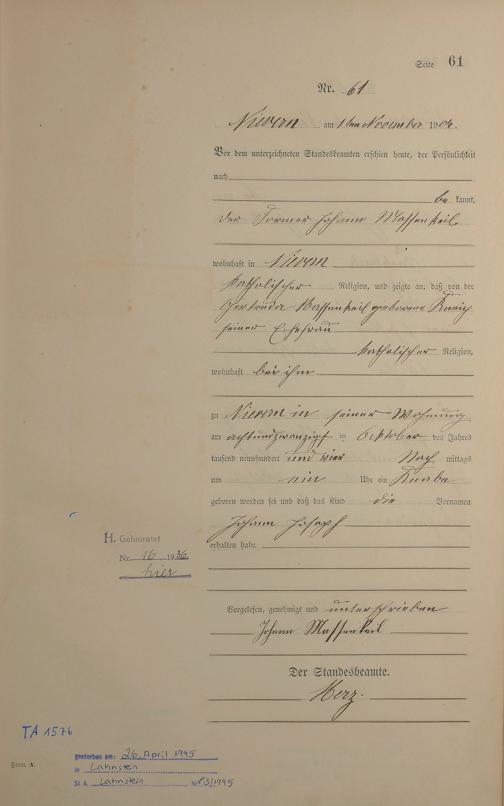 Seite 61
Nr. 61
Nievern am 1ten November 1904.
Vor dem unterzeichneten Standesbeamten erschien heute, der Persönlichkeit
nach
be kannt,
der Former Johann Massenkeil
wohnhaft in Nievern
katholischer Religion, und zeigte an, daß von der
Gertruda Massenkeil geborene
seiner Ehefrau
katholischer Religion,
wohnhaft bei ihm
zu Nievern in seiner Wohnung
am achtundzwanzigst Oktober des Jahres
tausend neunhundert und vier Nach mittags
um ein Uhr ein Knabe
geboren worden sei und daß das Kind die Vornamen
Johann Joseph
erhalten habe.
H. Geheiratet
Nr 16 1936
hier
Vorgelesen, genehmigt und unterschrieben
Johann Massenkeil
Der Standesbeamte.
Merz.
TA 1576
Form. A.
Gestorben am: 26. April 1995
in Lahnstein
St.A. Lahnstein Nr. 83/1995